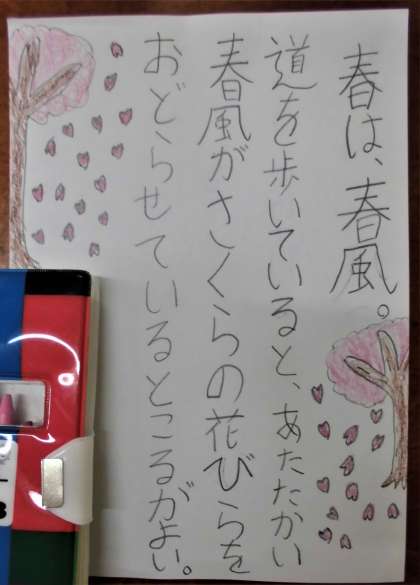 春は、春風。
道を歩いていると、あたたかい
春風がさくらの花びらを
おどらせているところがよい。